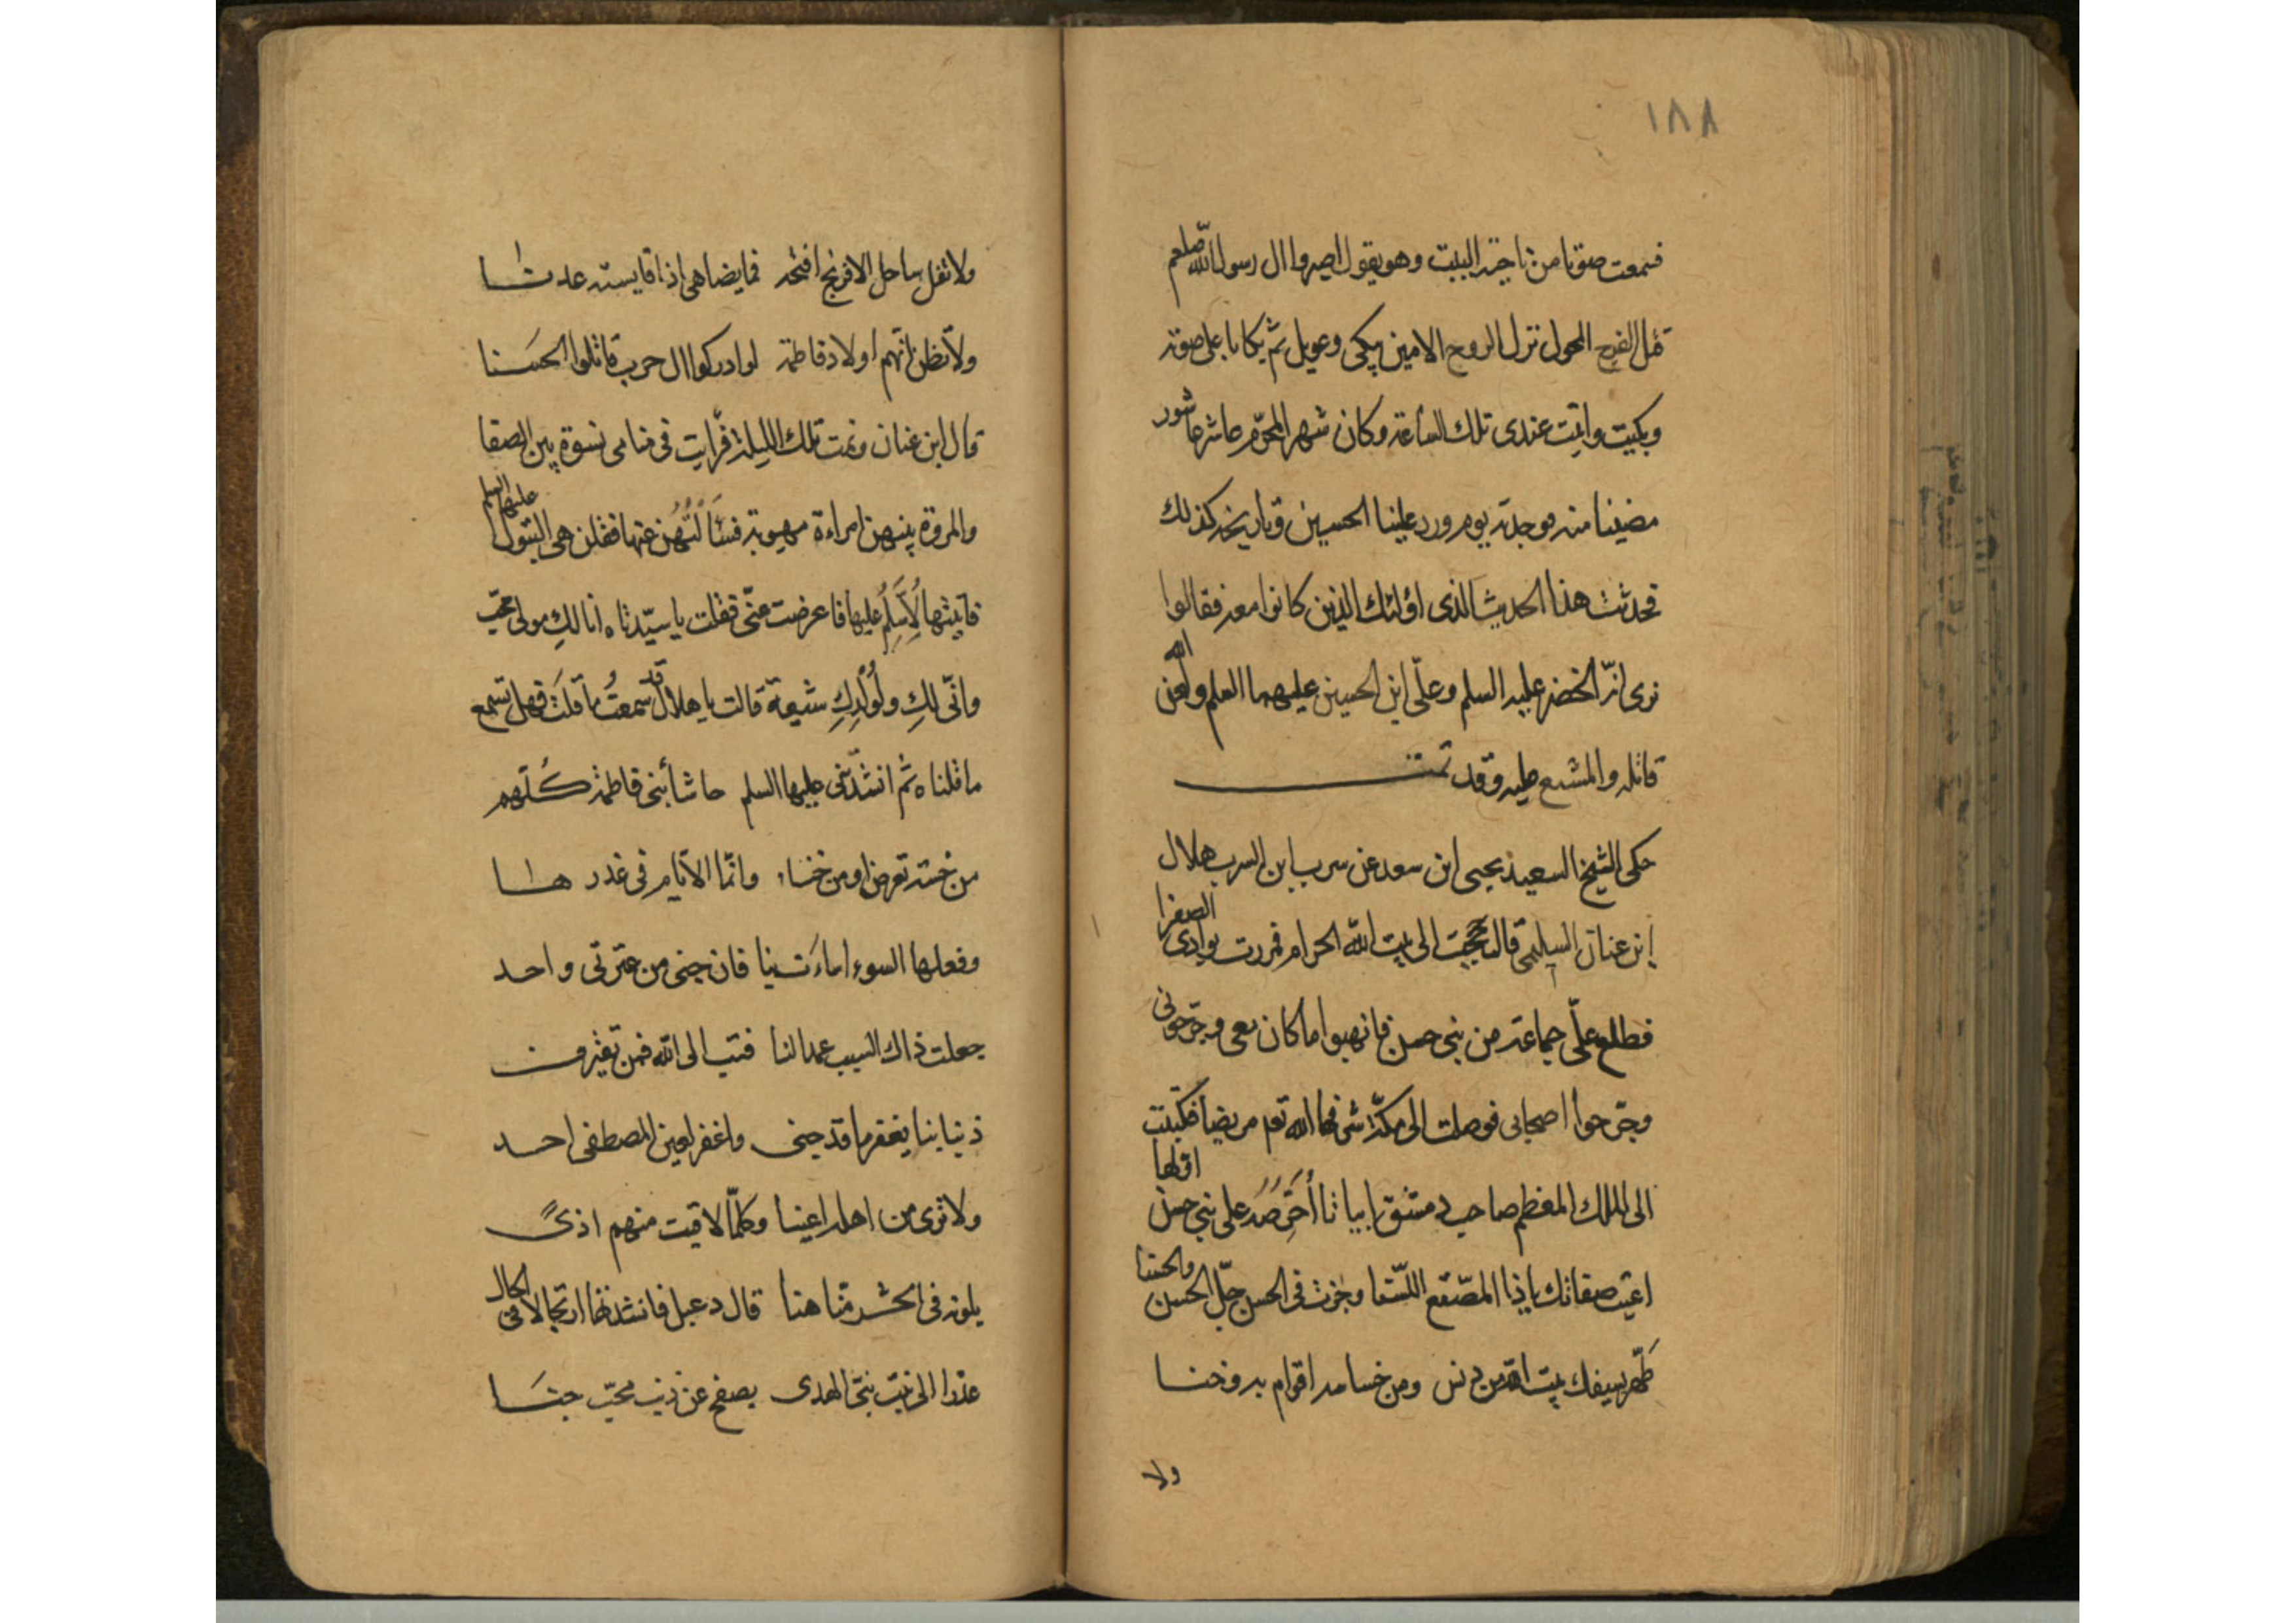 ١٨٨
فسمعت صوتا من ناحية البيت وهو يقول اصبروا ال رسول الله صلعم
قتل الفرخ النحول نزل الروح الامين ببكى وعويل ثم بكا باعلى صوته
وبكيت واثبت عندى تلك الساعة وكان شهر المحرم عاشر عاشور
مضينا منه فوجدته يوم ورد علينا الحسين وتاريخه كذلك
فحدثت هذا الحديث الذى اولئك الذين كانوا معه فقالوا
نرى انّه الخضر عليه السلم وعلّى ابن الحسين عليهما السلم ولعن الله
قاتله والمشيع عليه وقد تمت
حكى الشيخ السعيد يحيى ابن سعد عن سرب ابن السرب هلال
ابن عنان السليمى قال حججت الى بيت الله الحرام فمررت بوادى الصفرا
فطلع علّى جماعة من بنى حسن فانهبوا ما كان معى وجرّحونى
وجرّحوا اصحابى فوصلت الى مكة شرفها الله تعم مريضا فكتبت
الى الملك المعظم صاحب دمشق ابياتا أحرّصه على بنى حسن اولها
اعيت صفاتك ياذا المصقع اللسنا وجزت فى الحسن حدّ الحسن والحسنا
طهّر بسيفك بيت الله من دنس ومن خسامه اقوام به وخنا
ولا
ولا تقل ساحل الافرنج افتحه فما يضاهى اذا قايسته عدنا
ولا تظن انّهم اولاد فاطمة لو ادركوا ال حرب قاتلوا الحسنا
قال ابن عنان ونمت تلك الليلة فرأيت فى منامى نسوة بين الصفا
والمروة بينهن امراءة مهيوبة فسَألتُهُن عنها فقلن هى البتول عليها السلم
فاتيتها لِأُسَلِّمُ عليها فاعرضت عنّى فقلت يا سيّدتاه انا لكِ مولى محبّ
وانّى لكِ ولوُلْدِكِ شيعة قالت يا هلال قد سمعتُ ما قلتَ فهل تسمع
ما قلناه ثم انشدتنى عليها السلم حاشا بنى فاطمة كُلّهم
من خسّة تعرض او من خنا وانّما الايّام فى غدرها
وفعلها السوء اساءت بنا فان جنى من عترتى واحد
جعلت ذاك السبب عمدا لنا فتب الى الله فمن يقترف
ذنبا بنا يغفر ما قد جنى واغفر لعين المصطفى احمد
ولا ترى من اهله اعينا وكلّما لاقيت منهم اذىً
يلونه فى الحشر منّا هنا قال دعبل فانشدتها ارتجالا فى الحال
عذرا الى بنت نبىّ الهدى يصفح عن ذنب محبّ جنَا